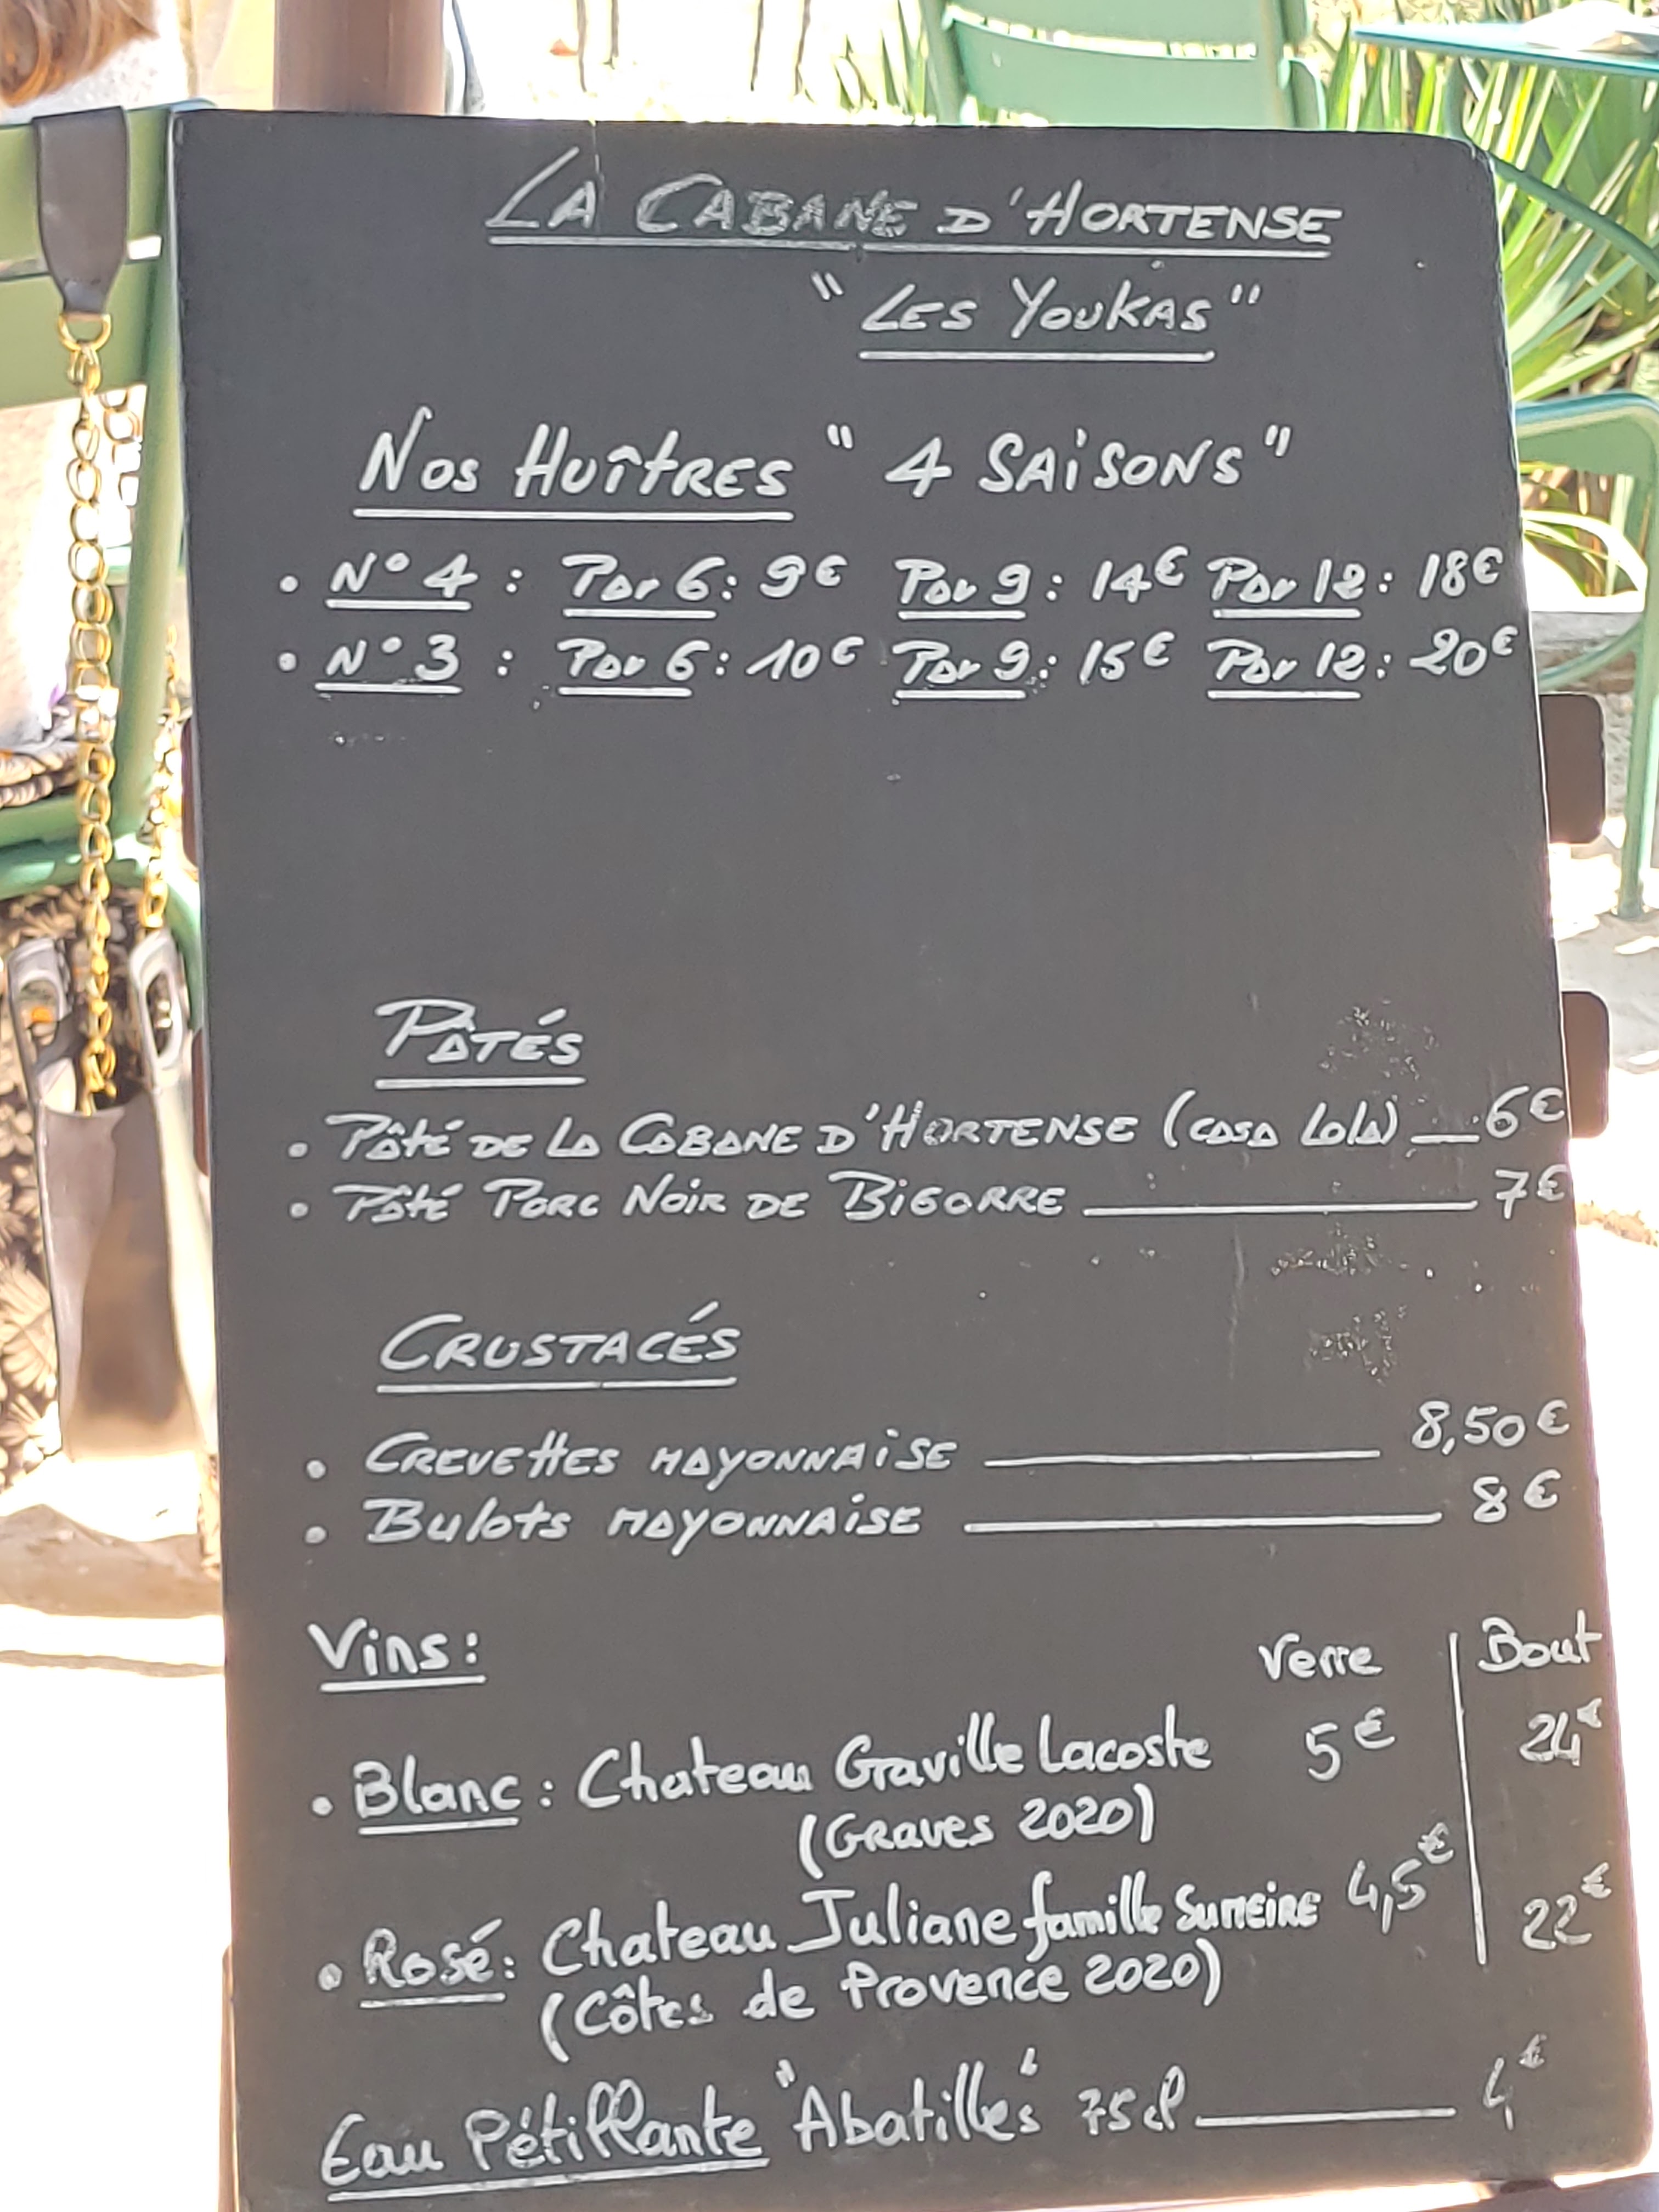 LA CABANE D'HORTENSE
"LES YOUKAS"
NOS HUÎTRES "4 SAISONS"
• N°4 : Par 6 : 9€ Par 9 : 14€ Par 12 : 18€
• N°3 : Par 6 : 10€ Par 9 : 15€ Par 12 : 20€
PÂTÉS
• Pâté DE LA CABANE D'HORTENSE (CASA Lola) __ 6€
• Pâté PORC NOIR DE BIGORRE ______ 7€
CRUSTACÉS
• CREVETTES MAYONNAISE ______ 8,50€
• Bulots MAYONNAISE ______ 8€
Vins : Verre | Bout
• Blanc : Chateau Graville Lacoste 5€ | 24€
(Graves 2020)
• Rosé : Chateau Juliane famille SUMEIRE 4,5€ | 22€
(Côtes de Provence 2020)
Eau Pétillante "Abatilles" 75cl ______ 4€